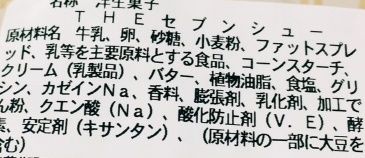 名称 洋生菓子
THEセブンシュー
原材料名 牛乳、卵、砂糖、小麦粉、ファットスプレ
ッド、乳等を主要原料とする食品、コーンスターチ、
クリーム(乳製品)、バター、植物油脂、食塩、グリ
シン、カゼインNa、香料、膨張剤、乳化剤、加工で
ん粉、クエン酸(Na)、酸化防止剤(V.E)、酵
素、安定剤(キサンタン)、(原材料の一部に大豆を
含む)